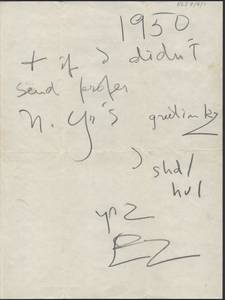 1950
+ if I didn't
send proper
N. Yr's greetinks
I shd/
hv/
yrz
EZ